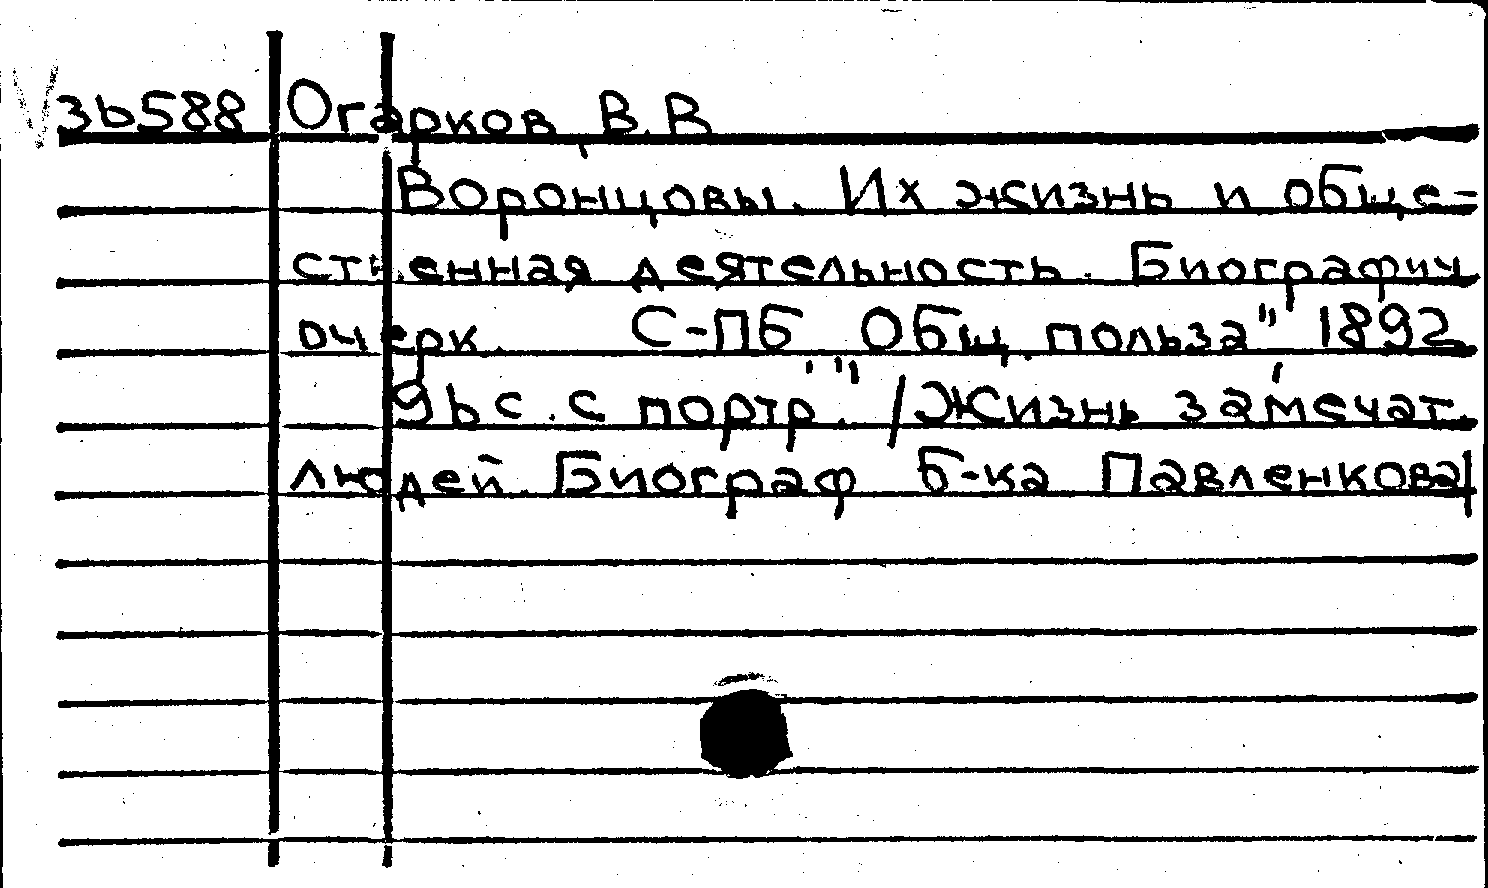 36588 Огарков, В.В.
Воронцовы. Их жизнь и обще-
ственная деятельность. Биографич.
очерк. С-ПБ "Общ. польза", 1892
96 с. с портр. /Жизнь замечат.
людей. Биограф. б-ка Павленкова/